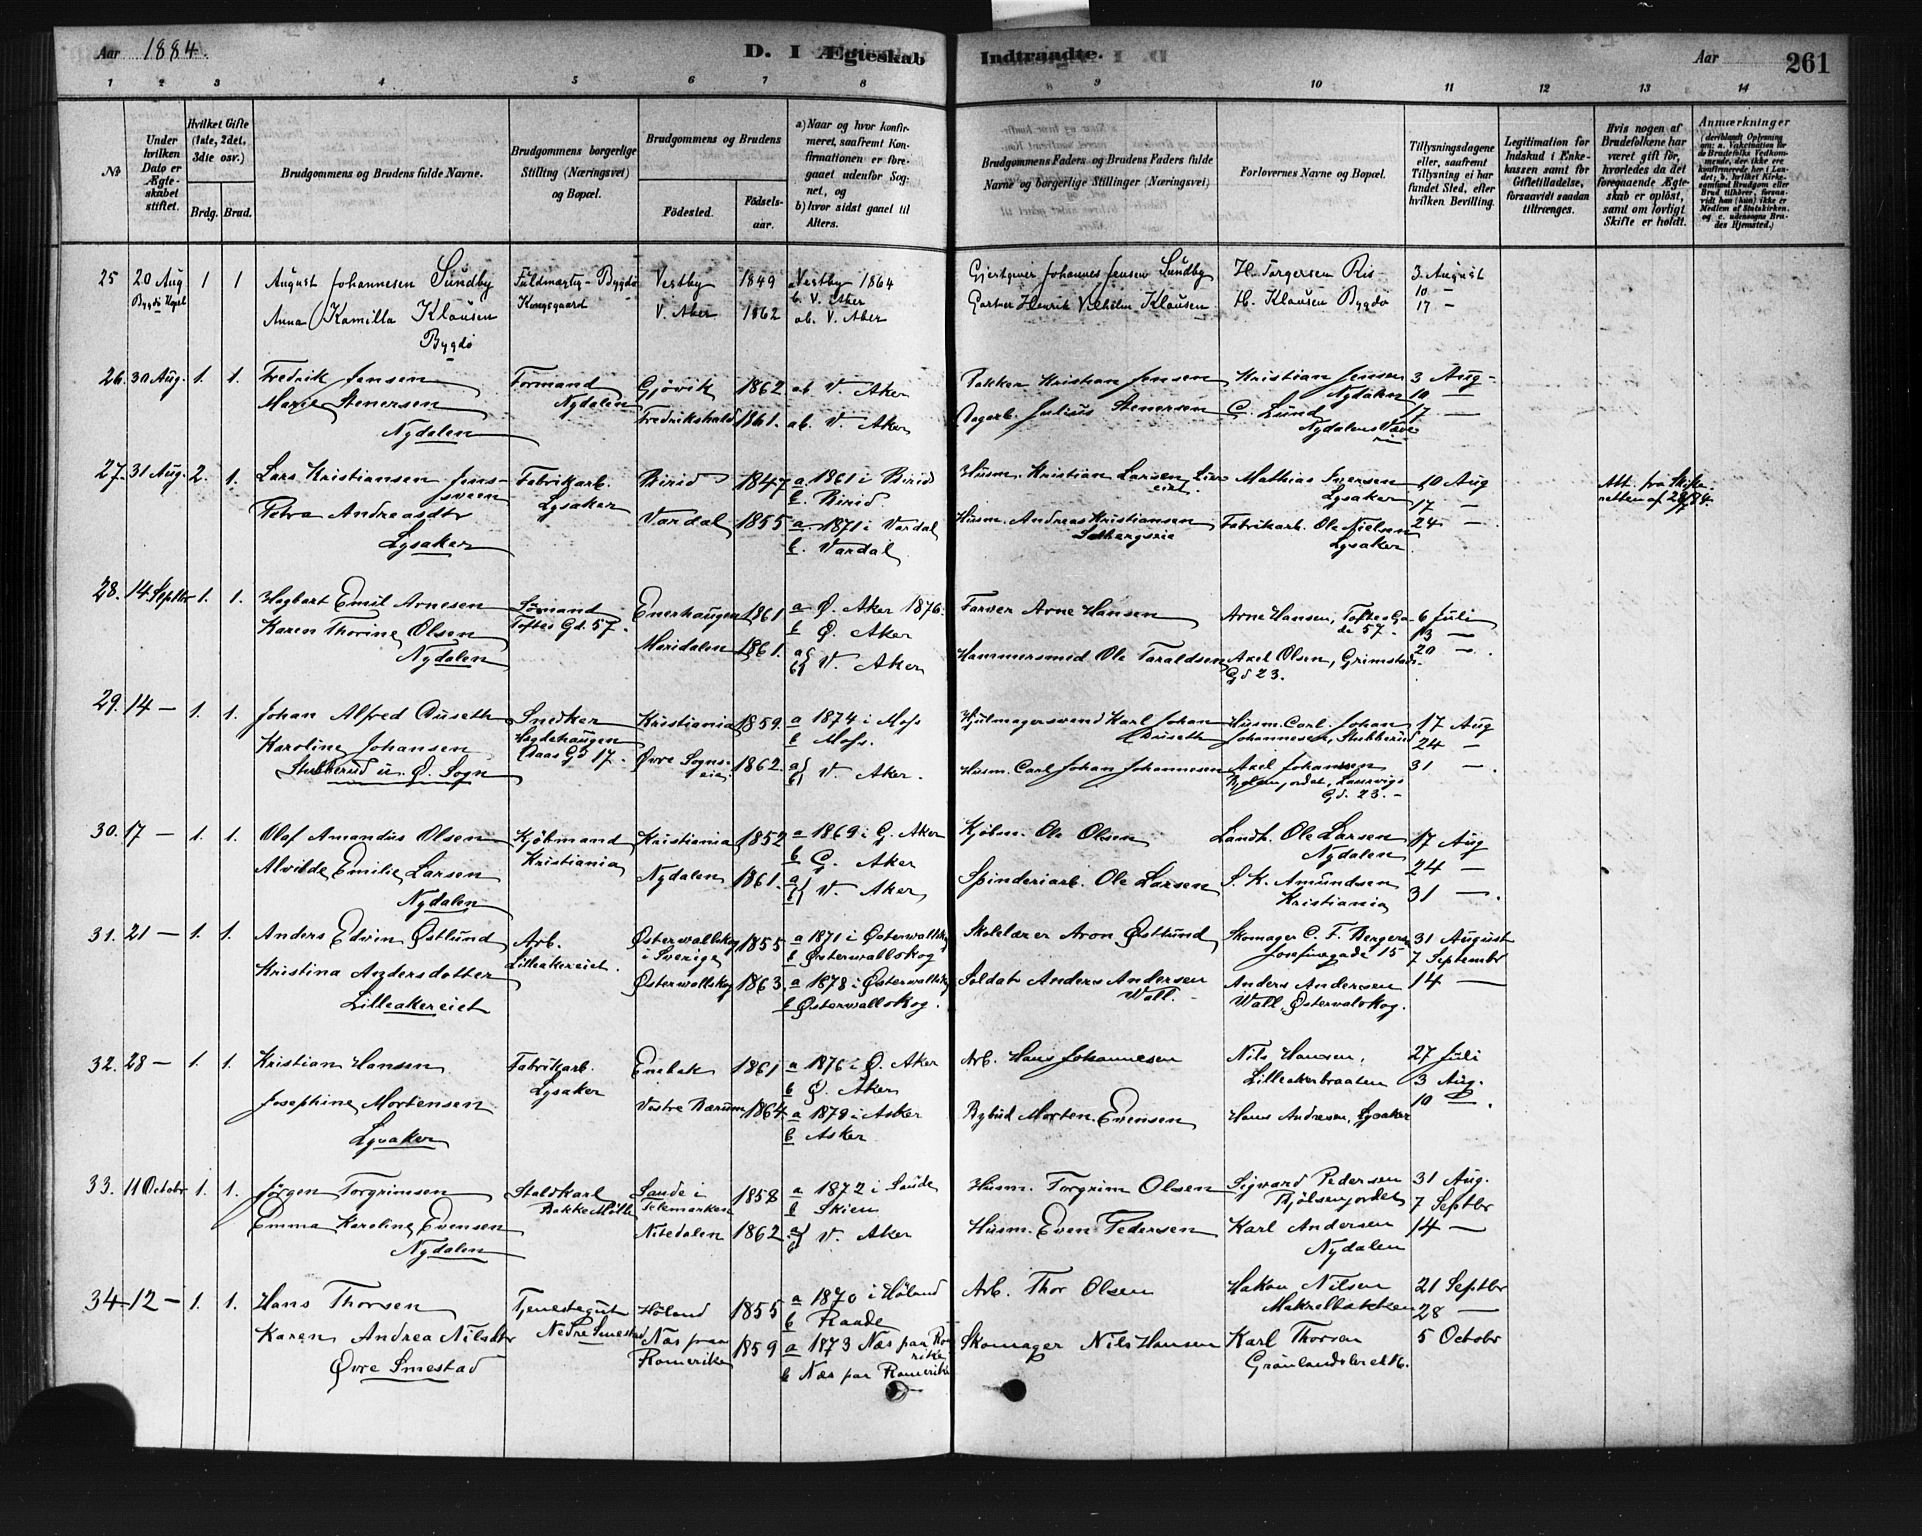 Aar 1884.
D. I Ægteskab Indtraadte.
Aar
261
1 2 3 4 5 6 7 8 9 10 11 12 13 14
No
Under hvilken Dato er Ægteskabet stiftet.
Hvilket Gifte (1ste, 2det, 3die osv.)
Brdg. Brud.
Brudgommens og Brudens fulde Navne.
Brudgommens borgerlige Stilling (Næringsvei) og Bopæl.
Brudgommens og Brudens
Födested.
Födselsaar.
a) Naar og hvor konfirmeret, saafremt Konfirmationen er foregaaet udenfor Sognet, og
b) hvor sidst gaaet til Alters.
Brudgommens Faders og Brudens Faders fulde Navne og borgerlige Stillinger (Næringsvei)
Forlovernes Navne og Bopæl.
Tillysningsdagene eller, saafremt Tillysning ei har fundet Sted, efter hvilken Bevilling.
Legitimation for Indskud i Enkekassen samt for Giftetilladelse, forsaavidt saadan tiltrænges.
Hvis nogen af Brudefolkene har været gift för, hvorledes da det foregaaende Ægteskab er oplöst, samt om lovligt Skifte er holdt.
Anmærkninger
25 20 Aug 1 1 August Johannesen Sundby Fuldmægtig Bygdø Vestby 1849 a Vestby 1864 Gjertgiver Johannes Jensen Sundby H. Torgersen Ris 3. August
Bygdö Kapel Kongsgaard b. V. Aker 10 —
Anna Kamilla Klausen V. Aker 1862 ab. V. Aker Gartner Henrik Vilhelm Klausen H. Klausen Bygdø 17 —
Bygdö
26. 30 Aug. 1. 1. Fredrik Jensen Formand Gjøvik 1862 ab V. Aker Pakker Kristian Jensen Kristian Jensen 3 Aug —
Marie Stenersen Nydalen Fredrikshald 1861. ab. V. Aker Dagarb. Julius Stenersen Nydalen 10 —
Nydalen C. Lund Nydalens Væveri 17 —
27. 31 Aug. 2. 1. Lars Kristiansen Jenssveen Fabrikarb. Birid 1847 a 1861 i Birid Husm. Kristian Larsen Mathias Iversen 10 Aug
Lysaker b. Birid Lysaker 17 —
Petra Andreasdtr Vardal 1855 a 1871 i Vardal Husm. Andreas Kristiansen Fabrikarb. Ole Nielsen 24 —
Lysaker b. Vardal Solbergseie Lysaker
Att. fra Skifteretten af
28. 14 Septbr 1. 1. Hagbart Emil Arnesen Sømand Enerhaugen 1861 a Ø. Aker 1876. Farver Arne Hansen Arne Hansen, Toftes Gade 57 6 Juli
Toftes Gd. 57. b Ø. Aker 13 —
Karen Thorine Olsen Maridalen 1861. a} b} V. Aker Hammersmed Ole Taraldsen Axel Olsen, Grimstads Gd 23. 20 —
Nydalen
29. 14 — 1. 1. Johan Alfred Duseth Snedker Kristiania 1859. a 1874 i Moss Hjulmagersvend Karl Johan Duseth Husm. Carl Johan Johannesen, Stubberud 17 Aug
Hægdehaugen b Moss. 24 —
Karoline Johansen Aas Gd 17. Øvre Sognseie 1862. a} b} V. Aker. Husm. Carl Johan Johannesen Axel Johansen 31 —
Stubberud u. Ø. Sogn Laurvigs Gd. 23. —
30. 17 — 1. 1. Olaf Amandus Olsen Kjöbmand Kristiania 1852 a 1869 i G. Aker Kjöbm. Ole Olsen Landh. Ole Larsen 17 Aug
Kristiania b G. Aker Nydalen 24 —
Alvilde Emilie Larsen Nydalen 1861. a} b} V. Aker Spinderiarb. Ole Larsen S. K. Amundsen 31 —
Nydalen Kristiania
31. 21 — 1. 1. Anders Edvin Østlund Arb. Østerwallskog i Sverige 1855 a 1871 i Østerwallskog Skolelærer Aron Østlund Skomager C. F. Bergersen 31 August
Lilleakereiet. b Østerwallskog Josefinegade 15 7 Septembr
Kristina Andersdotter Østerwallskog 1863 a 1878 i Østerwallskog Soldat Anders Andersen Wall. Anders Andersen 14 —
Lilleakereiet b Østerwallskog. Wall, Østervalskog.
32. 28 — 1. 1. Kristian Hansen Fabrikarb. Enebak 1861 a 1876 i Ø. Aker Arb. Hans Johannesen Nils Hansen, 27 Juli
Lysaker b Ø. Aker Lilleakerbraaten 3 Aug.
Josephine Mortensen Vestre Bærum 1864 a 1879 i Asker Rybud Morten Evensen Hans Andersen, Lysaker 10 —
Lysaker b Asker
33. 11 Octobr 1. 1. Jørgen Torgrimsen Staldkarl Saude i Telemarken 1858 a 1872 i Saude Husm. Torgrim Olsen Sigvard Pedersen 31 Aug.
Bakke Mölle b Skien Bjølsenjordet 7 Septbr
Emma Karoline Evensen Nitedalen 1862. a} b} V. Aker Husm. Even Pedersen Karl Andersen 14 —
Nydalen Nydalen
34 12 — 1. 1. Hans Thorsen Tjenestegut Höland 1855 a 1870 i Höland Arb. Thor Olsen Hakon Nilsen 21 Septbr
Nedre Smestad b Raade Makrelbækken 28 —
Karen Andrea Nilsdtr Næs paa Romerike 1859 a 1873 Næs paa Romerike Skomager Nils Hansen Karl Thorsen 5 Octobr
Øvre Smestad b Næs paa Romerike Grønlandsleret 16.